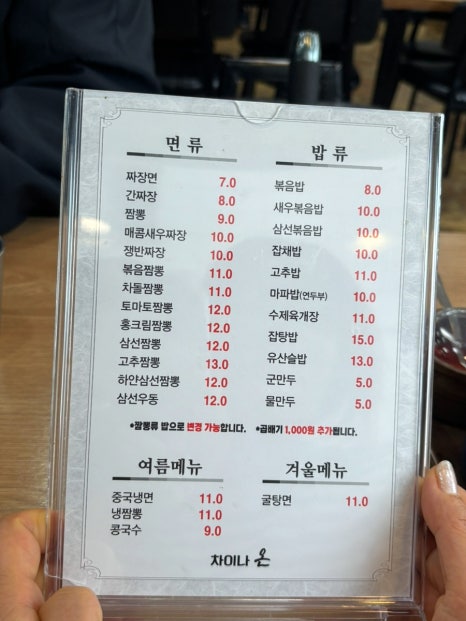 면 류
짜장면 7.0
간짜장 8.0
짬뽕 9.0
매콤새우짜장 10.0
쟁반짜장 10.0
볶음짬뽕 11.0
차돌짬뽕 11.0
토마토짬뽕 12.0
홍크림짬뽕 12.0
삼선짬뽕 12.0
고추짬뽕 13.0
하얀삼선짬뽕 12.0
삼선우동 12.0
밥 류
볶음밥 8.0
새우볶음밥 10.0
삼선볶음밥 10.0
잡채밥 10.0
고추밥 11.0
마파밥(연두부) 10.0
수제육개장 11.0
잡탕밥 15.0
유산슬밥 13.0
군만두 5.0
물만두 5.0
•짬뽕류 밥으로 변경 가능합니다. •곱배기 1,000원 추가됩니다.
여름메뉴
중국냉면 11.0
냉짬뽕 11.0
콩국수 9.0
겨울메뉴
굴탕면 11.0
차이나 온